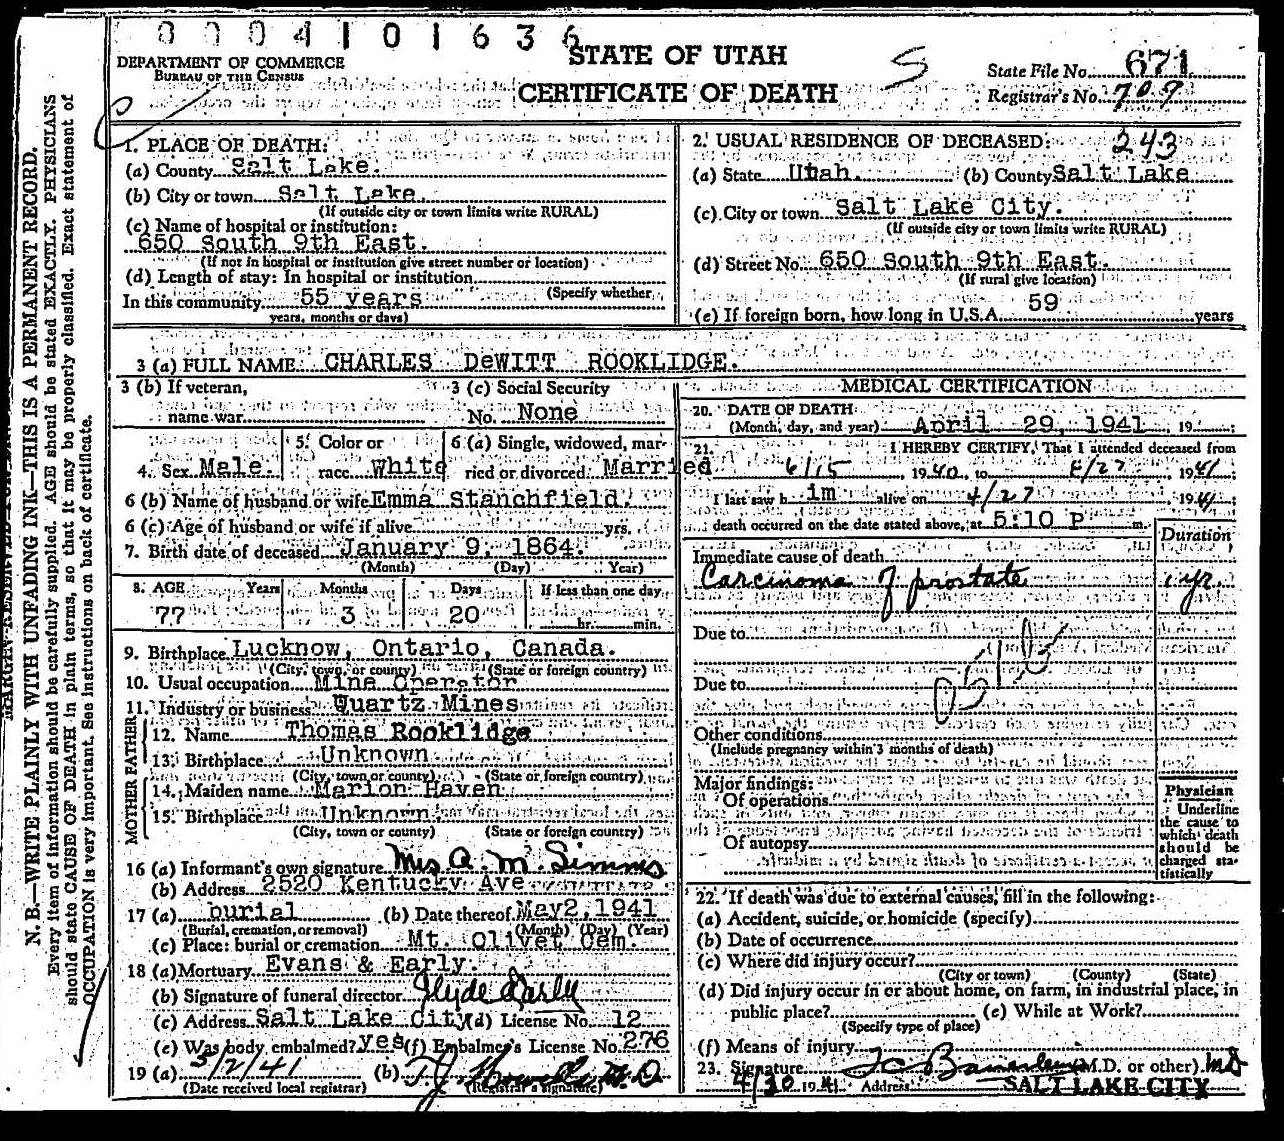 0004101636
DEPARTMENT OF COMMERCE
BUREAU OF THE CENSUS
STATE OF UTAH
CERTIFICATE OF DEATH
State File No. 671
Registrar's No. 709
243
MARGIN RESERVED FOR
N. B.—WRITE PLAINLY WITH UNFADING INK—THIS IS A PERMANENT RECORD.
Every item of information should be carefully supplied. AGE should be stated EXACTLY. PHYSICIANS
should state CAUSE OF DEATH in plain terms, so that it may be properly classified. Exact statement of
OCCUPATION is very important. See instructions on back of certificate.
1. PLACE OF DEATH:
(a) County Salt Lake.
(b) City or town Salt Lake.
(If outside city or town limits write RURAL)
(c) Name of hospital or institution:
650 South 9th East.
(If not in hospital or institution give street number or location)
(d) Length of stay: In hospital or institution
(Specify whether
In this community 55 years
years, months or days)
2. USUAL RESIDENCE OF DECEASED:
(a) State Utah. (b) County Salt Lake
(c) City or town Salt Lake City.
(If outside city or town limits write RURAL)
(d) Street No. 650 South 9th East.
(If rural give location)
(e) If foreign born, how long in U.S.A. 59 years
3 (a) FULL NAME CHARLES DeWITT ROOKLIDGE.
3 (b) If veteran,
name war
3 (c) Social Security
No. None
4. Sex Male.
5. Color or
race White
6 (a) Single, widowed, mar-
ried or divorced Married
6 (b) Name of husband or wife Emma Stanchfield.
6 (c) Age of husband or wife if alive yrs.
7. Birth date of deceased January 9, 1864.
(Month) (Day) Year)
8. AGE Years Months Days If less than one day
77 3 20 hr. min.
9. Birthplace Lucknow, Ontario, Canada.
(City, town, or county) (State or foreign country)
10. Usual occupation Mine Operator
11. Industry or business Quartz Mines
FATHER
12. Name Thomas Rooklidge
13. Birthplace Unknown
(City, town or county) (State or foreign country)
MOTHER
14. Maiden name Marion Haven
15. Birthplace Unknown
(City, town or county) (State or foreign country)
16 (a) Informant's own signature Mrs A. M. Simms
(b) Address 2520 Kentucky Ave
17 (a) burial (b) Date thereof May 2, 1941
(Burial, cremation, or removal) (Month) (Day) (Year)
(c) Place: burial or cremation Mt. Olivet Cem.
18 (a) Mortuary Evans & Early.
(b) Signature of funeral director Clyde Early
(c) Address Salt Lake City (d) License No. 12
(e) Was body embalmed? yes (f) Embalmer's License No. 276
19 (a) 5/2/41 (b) M.D.
(Date received local registrar) (Registrar's signature)
MEDICAL CERTIFICATION
20. DATE OF DEATH
(Month, day, and year) April 29, 1941, 19
21. I HEREBY CERTIFY, That I attended deceased from
6/15, 1940, to 4/27, 1941
I last saw h im alive on 4/27 1941;
death occurred on the date stated above, at 5:10 P m.
Duration
Immediate cause of death
Carcinoma of prostate 1 yr.
Due to
Due to
Other conditions
(Include pregnancy within 3 months of death)
Major findings:
Of operations
Of autopsy
Physician
Underline
the cause to
which death
should be
charged sta-
tistically
22. If death was due to external causes, fill in the following:
(a) Accident, suicide, or homicide (specify)
(b) Date of occurrence
(c) Where did injury occur?
(City or town) (County) (State)
(d) Did injury occur in or about home, on farm, in industrial place, in
public place? (e) While at Work?
(Specify type of place)
(f) Means of injury
23. Signature (M.D. or other) MD
4/30 1941 Address SALT LAKE CITY